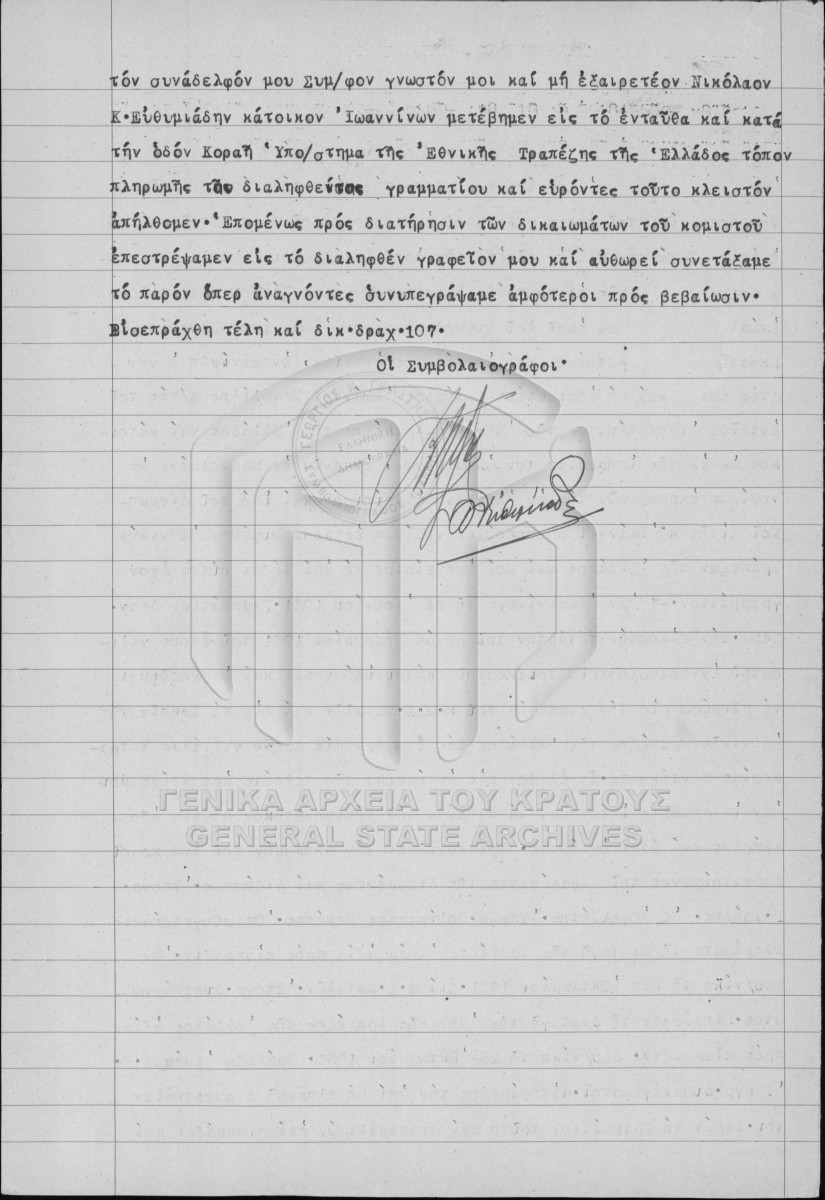 τόν συνάδελφόν μου Συμ/φον γνωστόν μοι καί μή ἐξαιρετέον Νικόλαον
Κ·Εὐθυμιάδην κάτοικον Ἰωαννίνων μετέβημεν εἰς τό ἐνταῦθα καί κατά
τήν ὁδόν Κοραῆ Ὑπο/στημα τῆς Ἐθνικῆς Τραπέζης τῆς Ἑλλάδος τόπον
πληρωμῆς τοῦ διαληφθέντος γραμματίου καί εὑρόντες τοῦτο κλειστόν
ἀπήλθομεν·Ἑπομένως πρός διατήρησιν τῶν δικαιωμάτων τοῦ κομιστοῦ
ἐπεστρέψαμεν εἰς τό διαληφθέν γραφεῖον μου καί αὐθωρεί συνετάξαμε
τό παρόν ὅπερ ἀναγνόντες συνυπεγράψαμε ἀμφότεροι πρός βεβαίωσιν·
Εἰσεπράχθη τέλη καί δικ·δραχ·107·
Οἱ Συμβολαιογράφοι·
ΓΕΩΡΓΙΟΣ Κ.
ΕΛΛΗΝΙΚΗ
ΔΗΜΟΚΡΑΤΙΑ
ΓΕΝΙΚΑ ΑΡΧΕΙΑ ΤΟΥ ΚΡΑΤΟΥΣ
GENERAL STATE ARCHIVES